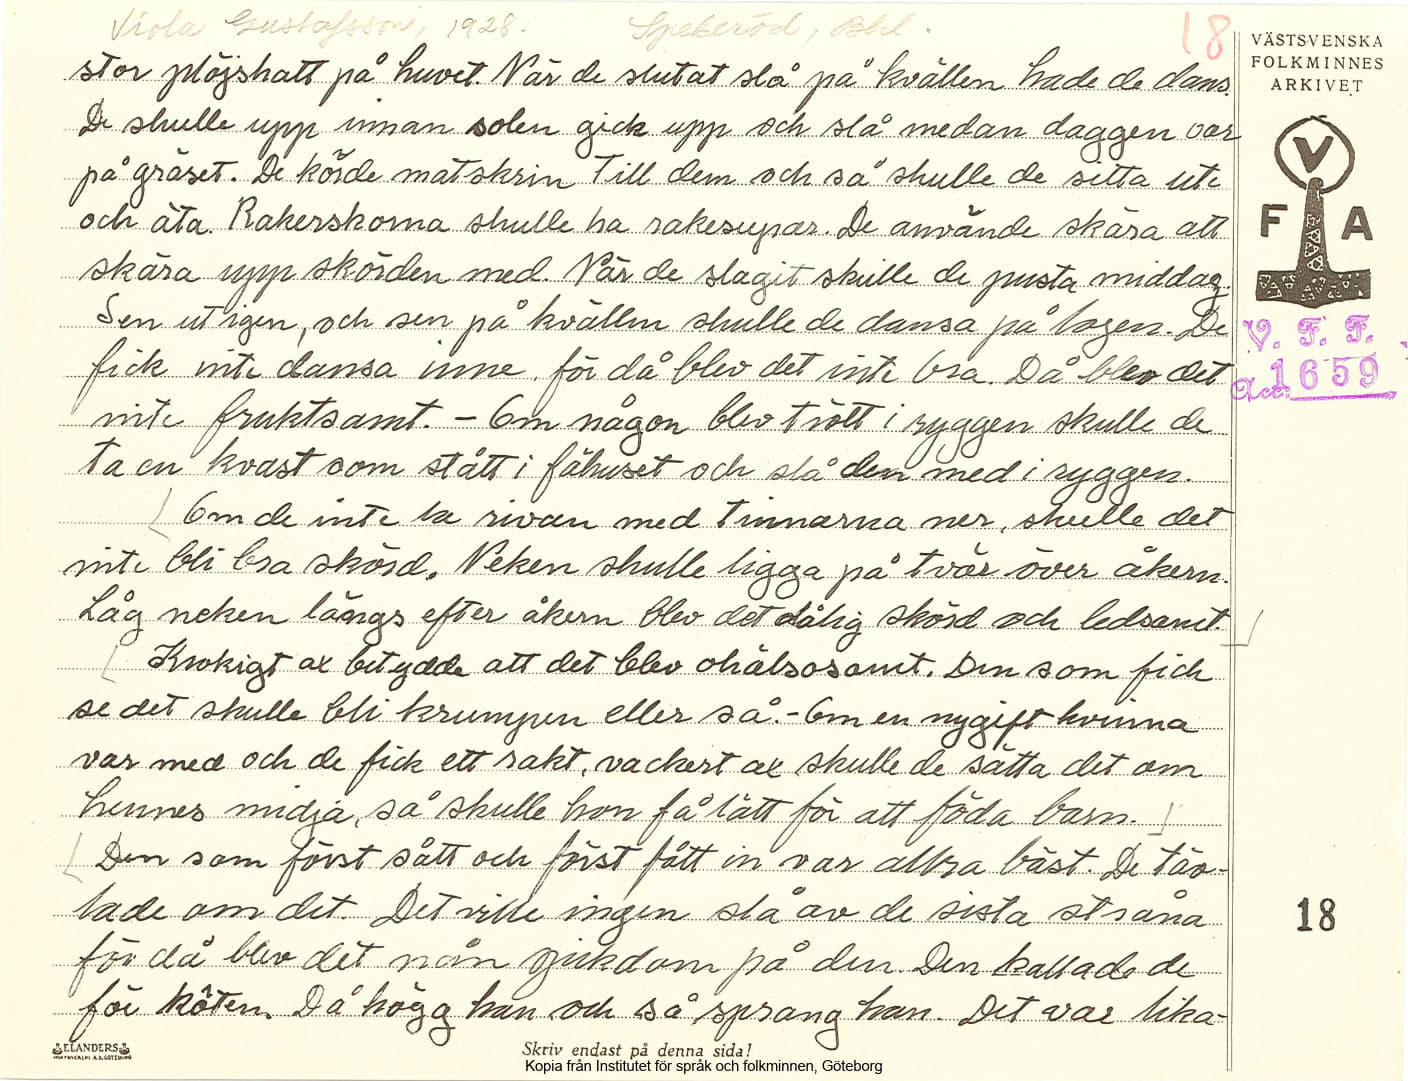 Viola Gustafsson, 1928. Spekeröd, Bhl. 18
VÄSTSVENSKA
FOLKMINNES
ARKIVET
V
F A
V. F. F.
Acc. 1659
stor plöjshatt på huvet. När de slutat slå på kvällen hade de dans.
De skulle upp innan solen gick upp och slå medan daggen var
på gräset. De körde matskrin till dem och så skulle de sitta ute
och äta. Rakerskorna skulle ha rakesupar. De använde skära att
skära upp skörden med. När de slagit skulle de pusta middag.
Sen ut igen, och sen på kvällen skulle de dansa på logen. De
fick inte dansa inne, för då blev det inte bra. Då blev det
inte fruktsamt. – Om någon blev trött i ryggen skulle de
ta en kvast som stått i fähuset och slå den med i ryggen.
Om de inte la rivan med tinnarna ner, skulle det
inte bli bra skörd. Neken skulle ligga på tvär över åkern.
Låg neken längs efter åkern blev det dålig skörd och ledsamt.
Krokigt ax betydde att det blev ohälsosamt. Den som fick
se det skulle bli krumpen eller så. – Om en nygift kvinna
var med och de fick ett rakt, vackert ax skulle de sätta det om
hennes midja, så skulle hon få lätt för att föda barn.
Den som först sått och först fått in var allra bäst. De täv-
lade om det. Det ville ingen slå av de sista stråna
för då blev det nån sjukdom på den. Den kallade de
för köten. Då högg han och så sprang han. Det var lika-
18
ELANDERS
Skriv endast på denna sida!
Kopia från Institutet för språk och folkminnen, Göteborg